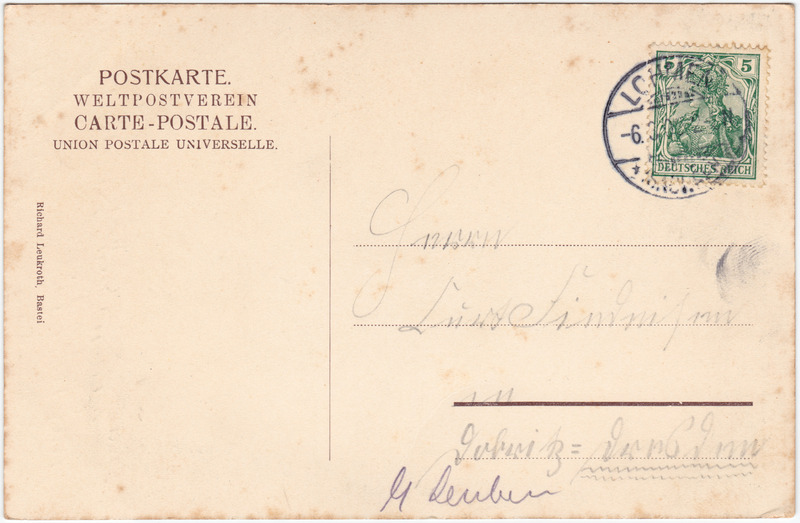 POSTKARTE.
WELTPOSTVEREIN
CARTE-POSTALE.
UNION POSTALE UNIVERSELLE.
Richard Leukroth, Bastei
5
LOHMEN
-6.
DEUTSCHES REICH
Herrn
Kurt Findeisen
in
Dobritz=Dresden
Leuben